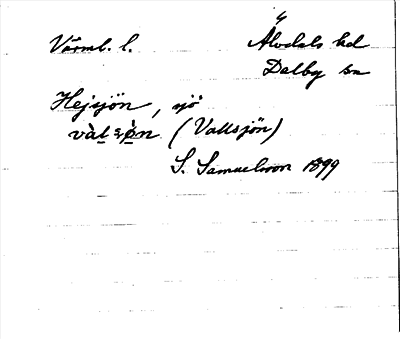 Värml. l. Älvdals hd
Dalby sn
Hejsjön, sjö
(Vallsjön)
S. Samuelsson 1899